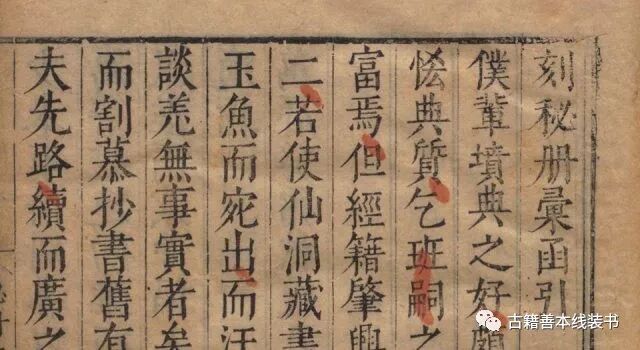 刻秘册彙函引
僕輩墳典之好頗
恡典質乞班嗣之
富焉但經籍肇興
二若使仙洞藏書
玉魚而宛出而汗
談羗無事實者矣
而割慕抄書舊有
夫先路續而廣之
古籍善本线装书